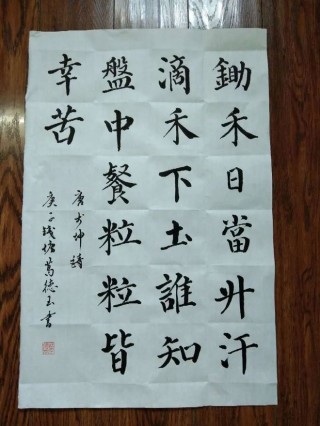 鋤禾日當午汗
滴禾下土誰知
盤中餐粒粒皆
辛苦
唐李紳詩
庚子錢塘德玉書